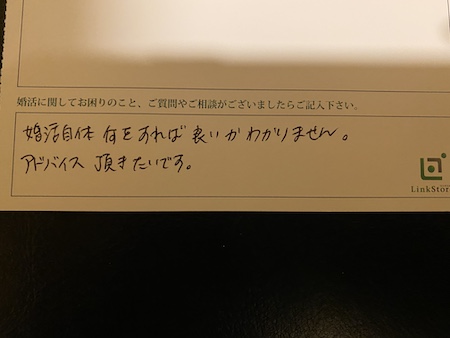 婚活に関してお困りのこと、ご質問やご相談がございましたらご記入下さい。
婚活自体 何をすれば良いかわかりません。
アドバイス 頂きたいです。
LinkStor